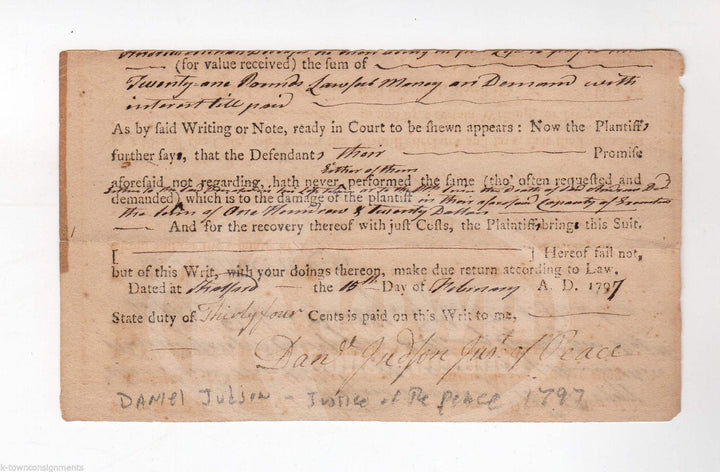 (for value received) the sum of
Twenty-one Pounds Lawful Money on Demand with
interest till paid
As by said Writing or Note, ready in Court to be shewn appears: Now the Plaintiffs
further says, that the Defendants their Promise
Either of them
aforesaid not regarding, hath never performed the same (tho' often requested and
demanded) which is to the damage of the plaintiff in their aforesaid Capacity of Executors
the sum of One Hundred & twenty Dollars
And for the recovery thereof with just Costs, the Plaintiffs brings this Suit.
[ ] Hereof fail not,
but of this Writ, with your doings thereon, make due return according to Law.
Dated at Stratford the 15th Day of February A. D. 1797
State duty of Thirty four Cents is paid on this Writ to me,
Danl. Judson Just of Peace
DANIEL JUDSON - Justice of the peace 1797
k-townconsignments